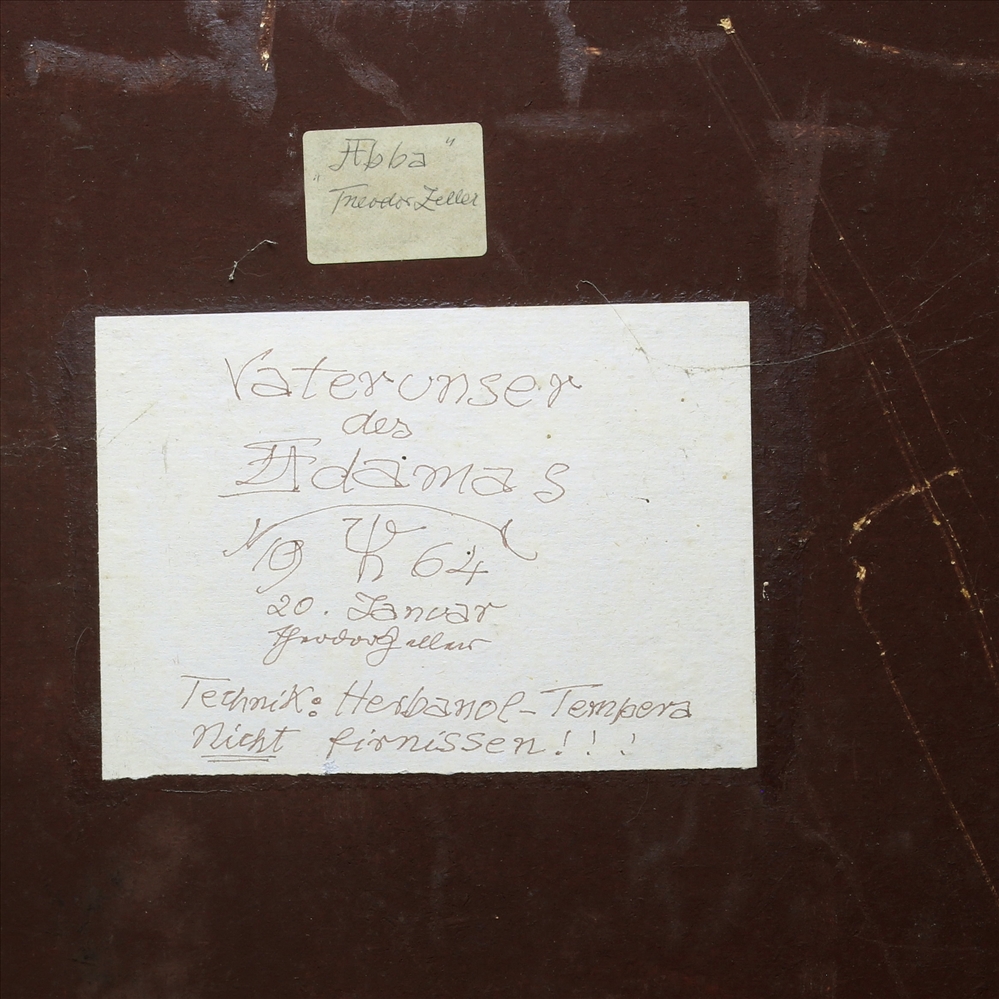 "Abba"
Theodor Zeller
Vaterunser
des
Adamas
19 64
20. Januar
Theodor Zeller
Technik: Herbanol-Tempera
Nicht firnissen!!!